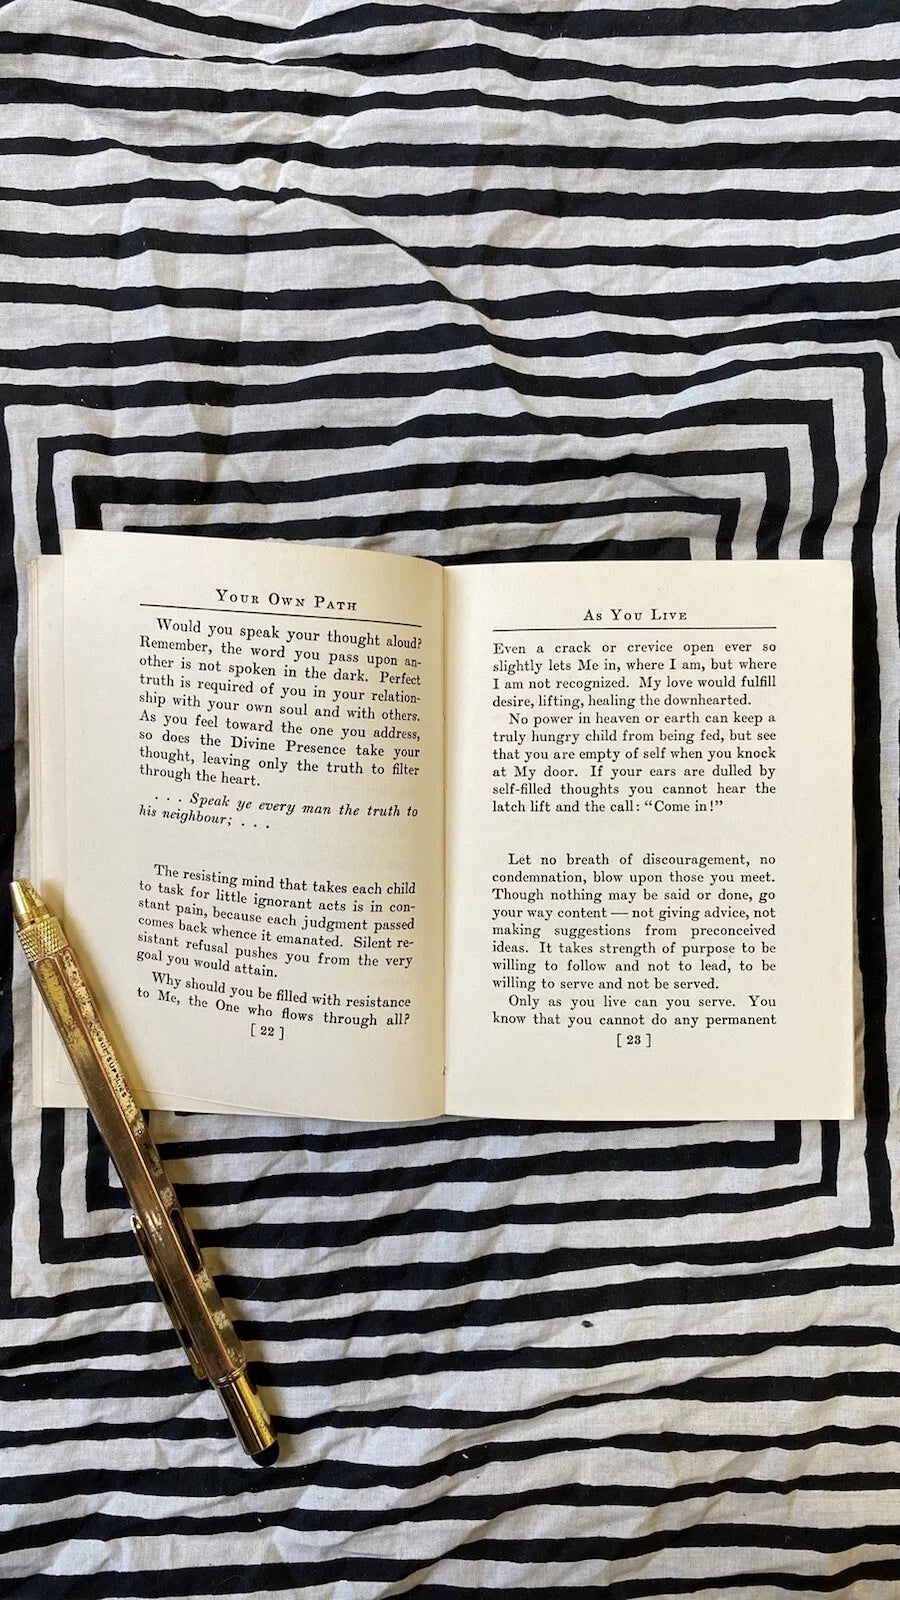 Your Own Path
Would you speak your thought aloud?
Remember, the word you pass upon an-
other is not spoken in the dark. Perfect
truth is required of you in your relation-
ship with your own soul and with others.
As you feel toward the one you address,
so does the Divine Presence take your
thought, leaving only the truth to filter
through the heart.
. . . Speak ye every man the truth to
his neighbour; . . .
The resisting mind that takes each child
to task for little ignorant acts is in con-
stant pain, because each judgment passed
comes back whence it emanated. Silent re-
sistant refusal pushes you from the very
goal you would attain.
Why should you be filled with resistance
to Me, the One who flows through all?
[ 22 ]
As You Live
Even a crack or crevice open ever so
slightly lets Me in, where I am, but where
I am not recognized. My love would fulfill
desire, lifting, healing the downhearted.
No power in heaven or earth can keep a
truly hungry child from being fed, but see
that you are empty of self when you knock
at My door. If your ears are dulled by
self-filled thoughts you cannot hear the
latch lift and the call: “Come in!”
Let no breath of discouragement, no
condemnation, blow upon those you meet.
Though nothing may be said or done, go
your way content — not giving advice, not
making suggestions from preconceived
ideas. It takes strength of purpose to be
willing to follow and not to lead, to be
willing to serve and not be served.
Only as you live can you serve. You
know that you cannot do any permanent
[ 23 ]